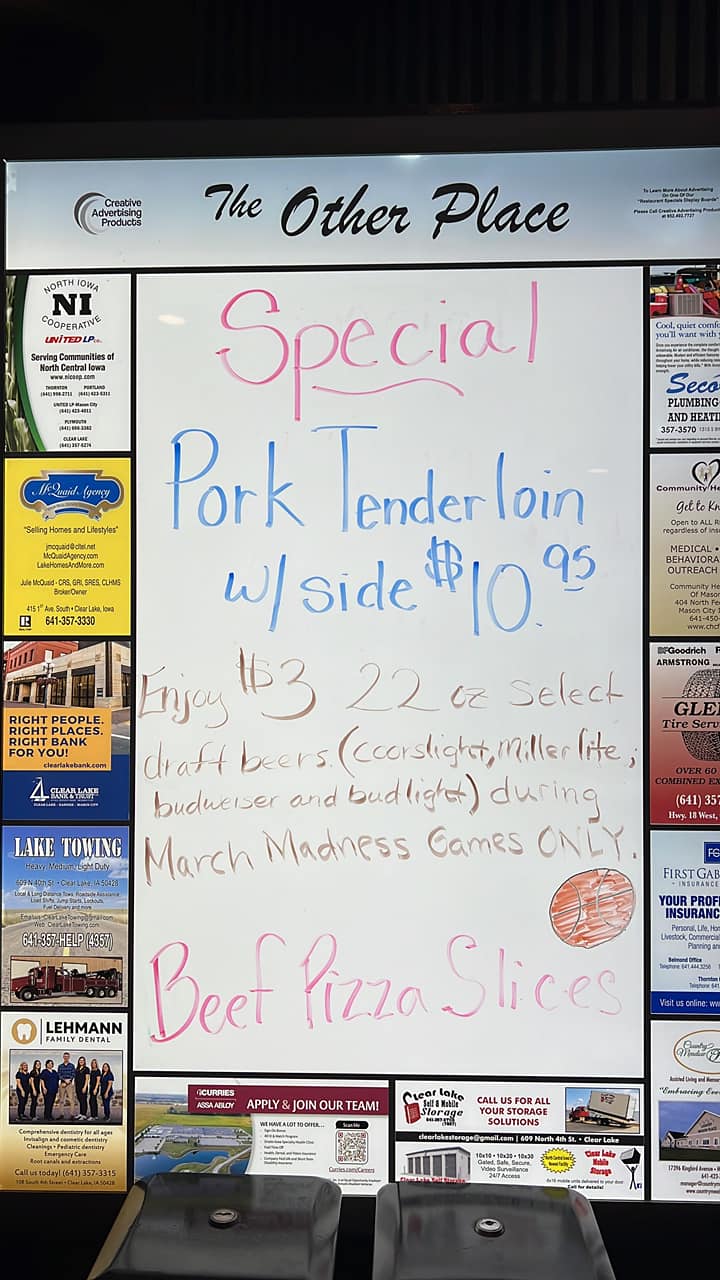 Creative
Advertising
Products
The Other Place
To Learn More About Advertising
On One Of Our
"Restaurant Specials Display Boards"
Please Call Creative Advertising Products
at 952.492.7727
Special
Pork Tenderloin
w/ side $10.95
Enjoy $3 22 oz select
draft beers (coorslight, Miller lite,
budweiser and budlight) during
March Madness Games ONLY.
Beef Pizza Slices
NORTH IOWA
NI
COOPERATIVE
UNITED LP
Serving Communities of
North Central Iowa
www.nicoop.com
THORNTON PORTLAND
(641) 998-2711 (641) 423-5311
UNITED LP-Mason City
(641) 423-4011
PLYMOUTH
CLEAR LAKE
(641) 357-5274
McQuaid Agency
"Selling Homes and Lifestyles"
jmcquaid@cltel.net
McQuaidAgency.com
LakeHomesAndMore.com
Julie McQuaid - CRS, GRI, SRES, CLHMS
Broker/Owner
415 1st Ave. South • Clear Lake, Iowa
641-357-3330
RIGHT PEOPLE.
RIGHT PLACES.
RIGHT BANK
FOR YOU!
clearlakebank.com
CLEAR LAKE
BANK & TRUST
LAKE TOWING
Heavy, Medium, Light Duty
609 N 40th St. • Clear Lake, IA 50428
Local & Long Distance Tows, Roadside Assistance,
Load Shifts, Jump Starts, Lockouts,
Fuel Delivery and more
Email us: ClearLakeTowing@gmail.com
Web: ClearLakeTowing.com
641-357-HELP (4357)
LEHMANN
FAMILY DENTAL
Comprehensive dentistry for all ages
Invisalign and cosmetic dentistry
Cleanings • Pediatric dentistry
Emergency Care
Root canals and extractions
Call us today! (641) 357-3315
108 South 4th Street • Clear Lake, IA 50428
CURRIES
ASSA ABLOY
APPLY & JOIN OUR TEAM!
WE HAVE A LOT TO OFFER...
Scan Me
Curries.com/Careers
Clear Lake
Self & Mobile
Storage
CALL US FOR ALL
YOUR STORAGE
SOLUTIONS
clearlakestorage@gmail.com | 609 North 4th St. • Clear Lake
10x10 • 10x20 • 10x30
Gated, Safe, Secure,
Video Surveillance
24/7 Access
Clear Lake
Mobile
Storage
Clear Lake Self Storage
Call for details!
Cool, quiet
you'll want with
PLUMBING
AND HEATI
357-3570
Community He
Get to Kn
Open to ALL
regardless of
MEDICAL •
BEHAVIORA
OUTREACH
Community He
Of Mason
404 North Fe
Mason City
641-450-
BFGoodrich
ARMSTRONG
GLE
Tire Serv
OVER 60
COMBINED EX
(641) 357
Hwy. 18 West,
FIRST GAB
INSURANCE
YOUR PROF
INSURANC
Livestock, Commercial
Planning an
Belmond Office
Telephone 641.444.3256
Thornton
Visit us online: ww
Country
Meadow
Assisted Living and
"Embracing